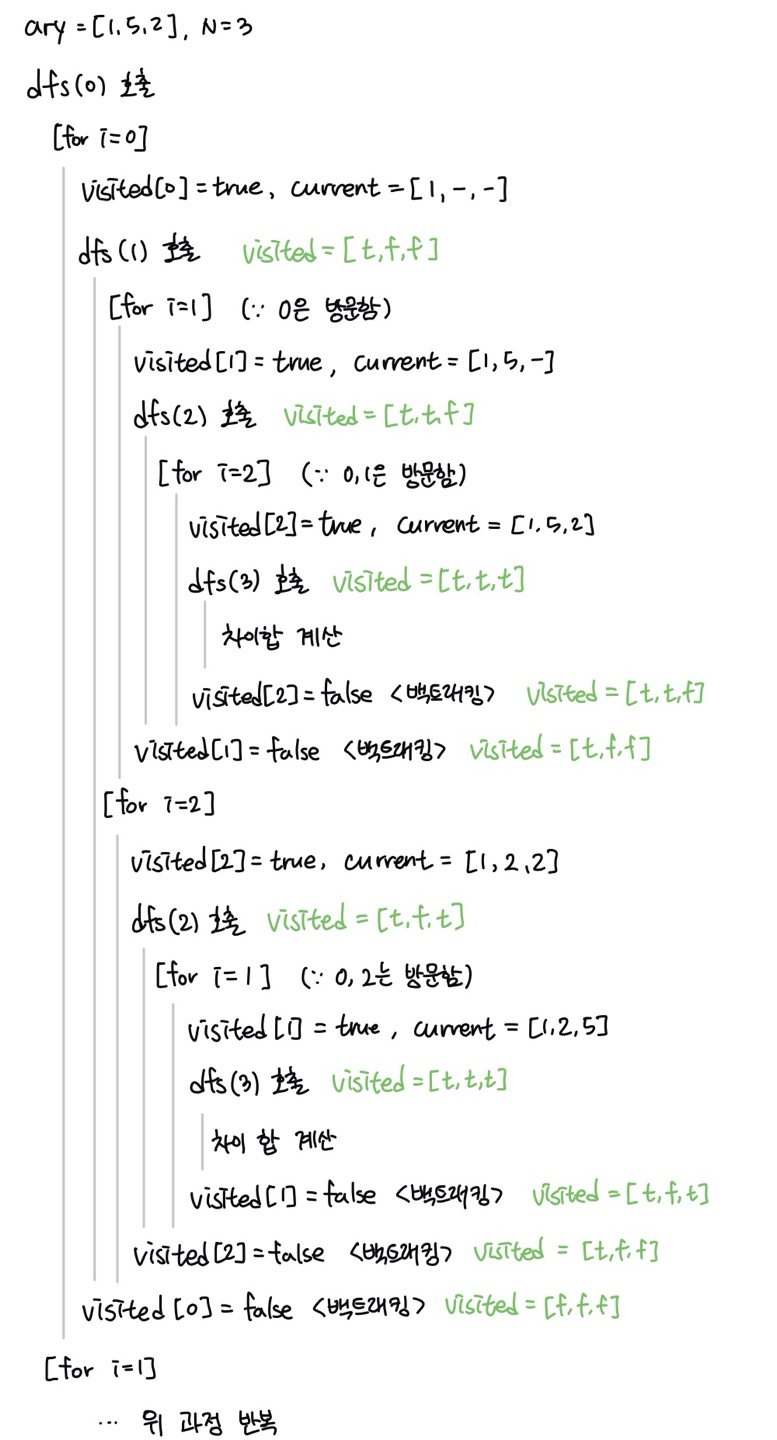 ary = [1,5,2], N=3
dfs(0) 호출
[for i=0]
visited[0] = true, current = [1,-,-]
dfs(1) 호출 visited = [t,f,f]
[for i=1] (∵ 0은 방문함)
visited[1] = true, current = [1,5,-]
dfs(2) 호출 visited = [t,t,f]
[for i=2] (∵ 0,1은 방문함)
visited[2] = true, current = [1,5,2]
dfs(3) 호출 visited = [t,t,t]
차이합 계산
visited[2] = false <백트래킹> visited = [t,t,f]
visited[1] = false <백트래킹> visited = [t,f,f]
[for i=2]
visited[2] = true, current = [1,2,2]
dfs(2) 호출 visited = [t,f,t]
[for i=1] (∵ 0,2는 방문함)
visited[1] = true, current = [1,2,5]
dfs(3) 호출 visited = [t,t,t]
차이 합 계산
visited[1] = false <백트래킹> visited = [t,f,t]
visited[2] = false <백트래킹> visited = [t,f,f]
visited[0] = false <백트래킹> visited = [f,f,f]
[for i=1]
... 위 과정 반복